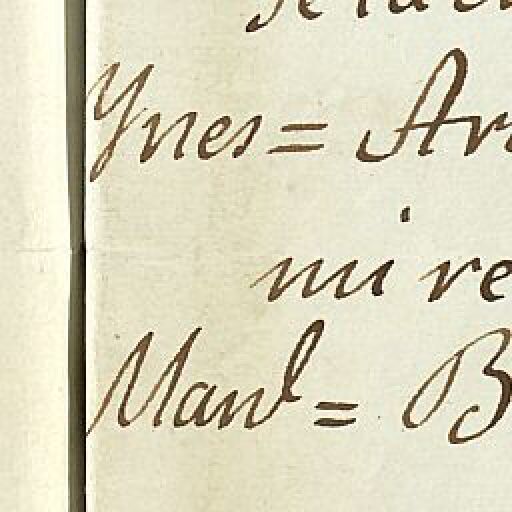 Ynes = Ar
mi re
Man.l = B